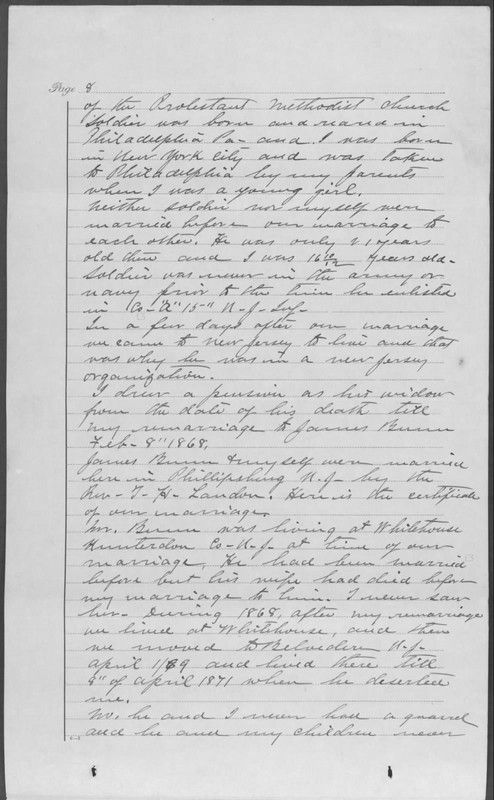 Page 8
of the Protestant Methodist Church
Soldier was born and reared in
Philadelphia Pa- and I was born
in New York City and was taken
to Philadelphia by my parents
when I was a young girl.
Neither soldier nor myself were
married before our marriage to
each other. He was only 21 years
old then and I was 16 1/2 years old-
Soldier was never in the army or
navy prior to the time he enlisted
in Co- "A" 15" N-J- Inf-
In a few days after our marriage
we came to New Jersey to live and that
was why he was in a new Jersey
organization.
I drew a pension as his widow
from the date of his death till
my remarriage to James Bunn
Feb- 8" 1868.
James Bunn & myself were married
here in Phillipsburg N.J- by the
Rev- T- H- Landon. Here is the certificate
of our marriage.
Mr. Bunn was living at Whitehouse
Hunterdon Co- N-J- at time of our
marriage, He had been married
before but his wife had died before
my marriage to him. I never saw
her- During 1868, after my remarriage
we lived at Whitehouse, and then
we moved to Belvidere N-J-
April 1/69 and lived there till
of April 1871 when he deserted
me.
No. he and I never had a quarrel
and he and my children never